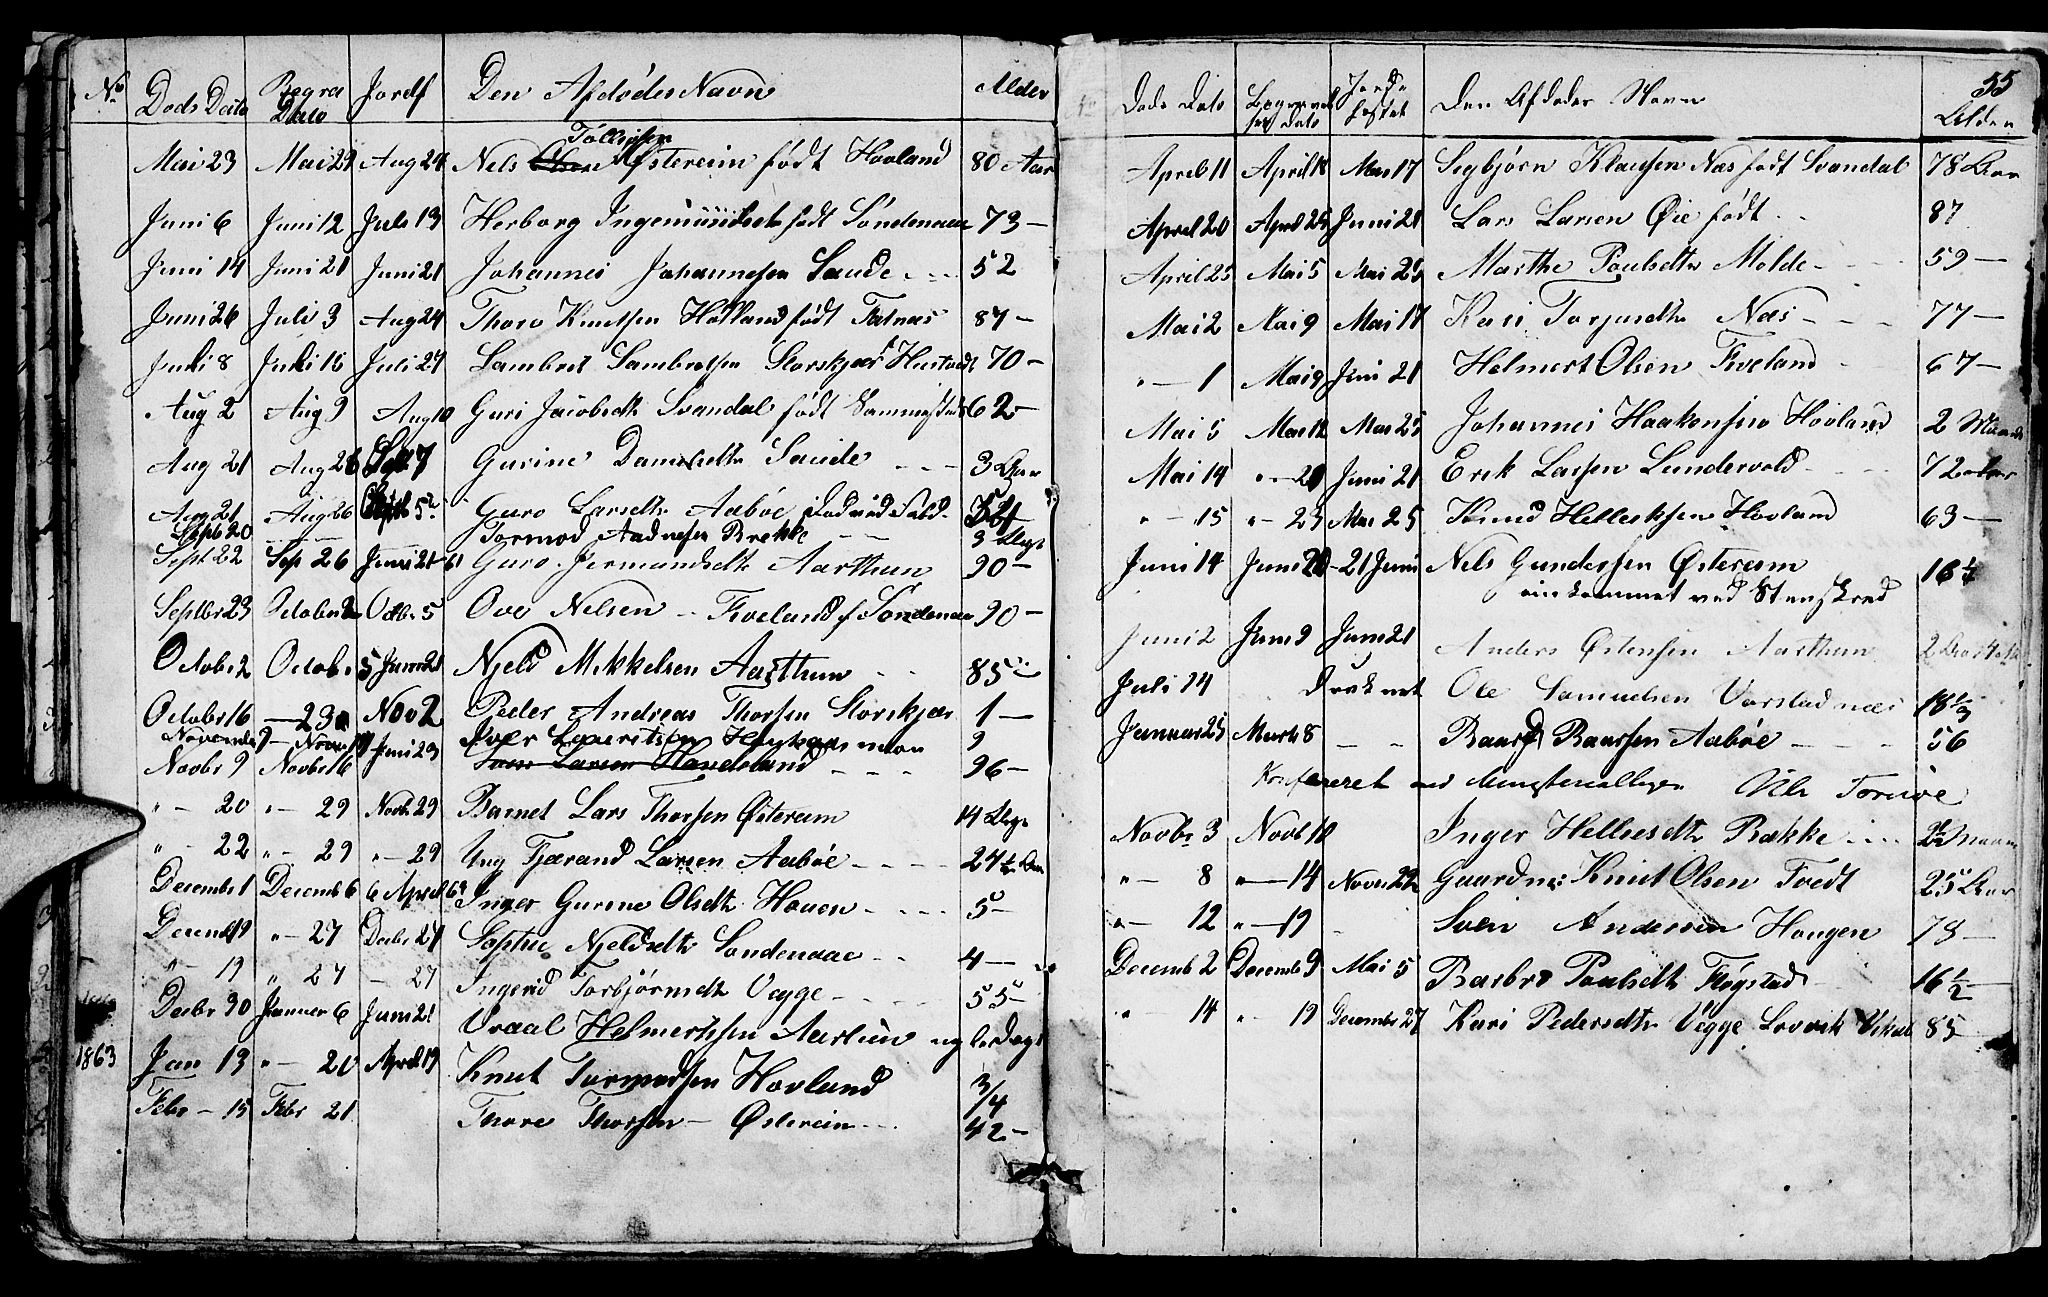 No Døds Dato Begra Dato Jordf Den Afdødes Navn Alder
Mai 23 Mai 29 Aug 24 Nels Tollevsen Østereim født Hovland 80 Aar
Juni 6 Juni 12 Juli 13 Herborg Ingemundsdtr født Søndenaa 73 –
Juni 14 Juni 21 Juni 21 Johannes Johannesen Saude 52
Juni 26 Juli 3 Aug 24 Thore Knutsen Hofland født Fatnæs 87 –
Juli 8 Juli 16 Juli 27 Lambret Lambretsen Storskjær Hustvedt 70 –
Aug 2 Aug 9 Aug 10 Guri Jacobsdtr Svandal født 62 –
Aug 21 Aug 26 Sept 7 Gurine Danielsdtr Saude 3 Aar
Aug 21 Aug 26 5 Guro Larsdtr Aabøe
Sept 20 Tormod Aadnesen Brekke 3 Dage
Sept 22 Sep 26 Juni 21 Guro Jermundsdtr Aarthun 90 –
Septbr 23 October Octbr 5 Ove Nelsen – Fiveland f Søndenaa 90 –
Octobr 2 Octobr 5 Juni 21 Njeld Mikkelsen Aarthun 85
October 16 – 23 Nov 2 Peder Andreas Thorsen Storskjær 1 –
November 9 – Novbr Juni 23 Iver Lauritsen 9
Novbr 9 Novbr 16 Iver Larsen 96 –
" – 20 " – 29 Novb 29 Barnet Lars Thorsen Østereim 14 Dage
" – 22 " – 29 " – 29 Ung Tjærand Larsen Aabøe 24 ½ Aar
Decembr 1 Decemb 6 6 April 63 Inger Gurine Olsdtr Hauen 5 –
Decemb 19 " – 27 Decbr 27 Sophie Njeldsdtr Søndenaae 4 –
" – 19 " 27 – 27 Ingerid Torbjørnsdtr Vegge 55 –
Decbr 30 Januar 6 Juni 21 Vraal Helmertssen Aartun
1863 Jan 13 " – 20 April 19 Knut Tormodsen Hovland 3/4
Febr – 15 Febr 21 Thore Thorsen – Østereim 42 –
55
Døds Dato Begravelses Dato Jordfæstet Den Afdødes Navn Alder
April 11 April 18 Mai 17 Segbjørn Klausen Næs født Svandal 78 Aar
April 20 April 25 Juni 21 Lars Larsen Øie født 87
April 25 Mai 5 Mai 25 Marthe Poulsdtr Molde 59 –
Mai 2 Mai 9 Mai 17 Kari Torjusdtr Næs 77 –
" – 1 Mai 9 Juni 21 Helmert Olsen Fiveland 67 –
Mai 5 Mai 12 Mai 25 Johannes Haakonsen Hovland 2 Maaned
Mai 14 " – 20 Juni 21 Erik Larsen Lundervold 72 Aar
" – 15 " – 23 Mai 25 Knud Helleiksen Hovland 63 –
Juni 14 Juni 20 – 21 Juni Nels Gundersen Østereim 16 ½
omkommet ved Stenskred
Juni 2 Juni 9 Juni 21 Anders Østensen Aarthun
Juli 14 druknet Ole Samuelsen Vorstadnæs 18 ½
Januar 25 Marts 8 – – Baard Baarsen Aabøe 56
Konfereret med Ministerialbogen Nils Tornøe
Novbr 3 Novb 10 Inger Helleesdtr Bakke
" – 8 " – 14 Novbr 22 Gaardm: Knut Olsen Tvedt 25 Aar
" – 12 " – 19 Svein Andersen Haugen 78 –
Decemb 2 Decembr 9 Mai 5 Barbro Poulsdtr Fløgstad 16 ½
" – 14 " – 19 December 27 Kari Pedersdtr Vegge Lovvik Vikal 85